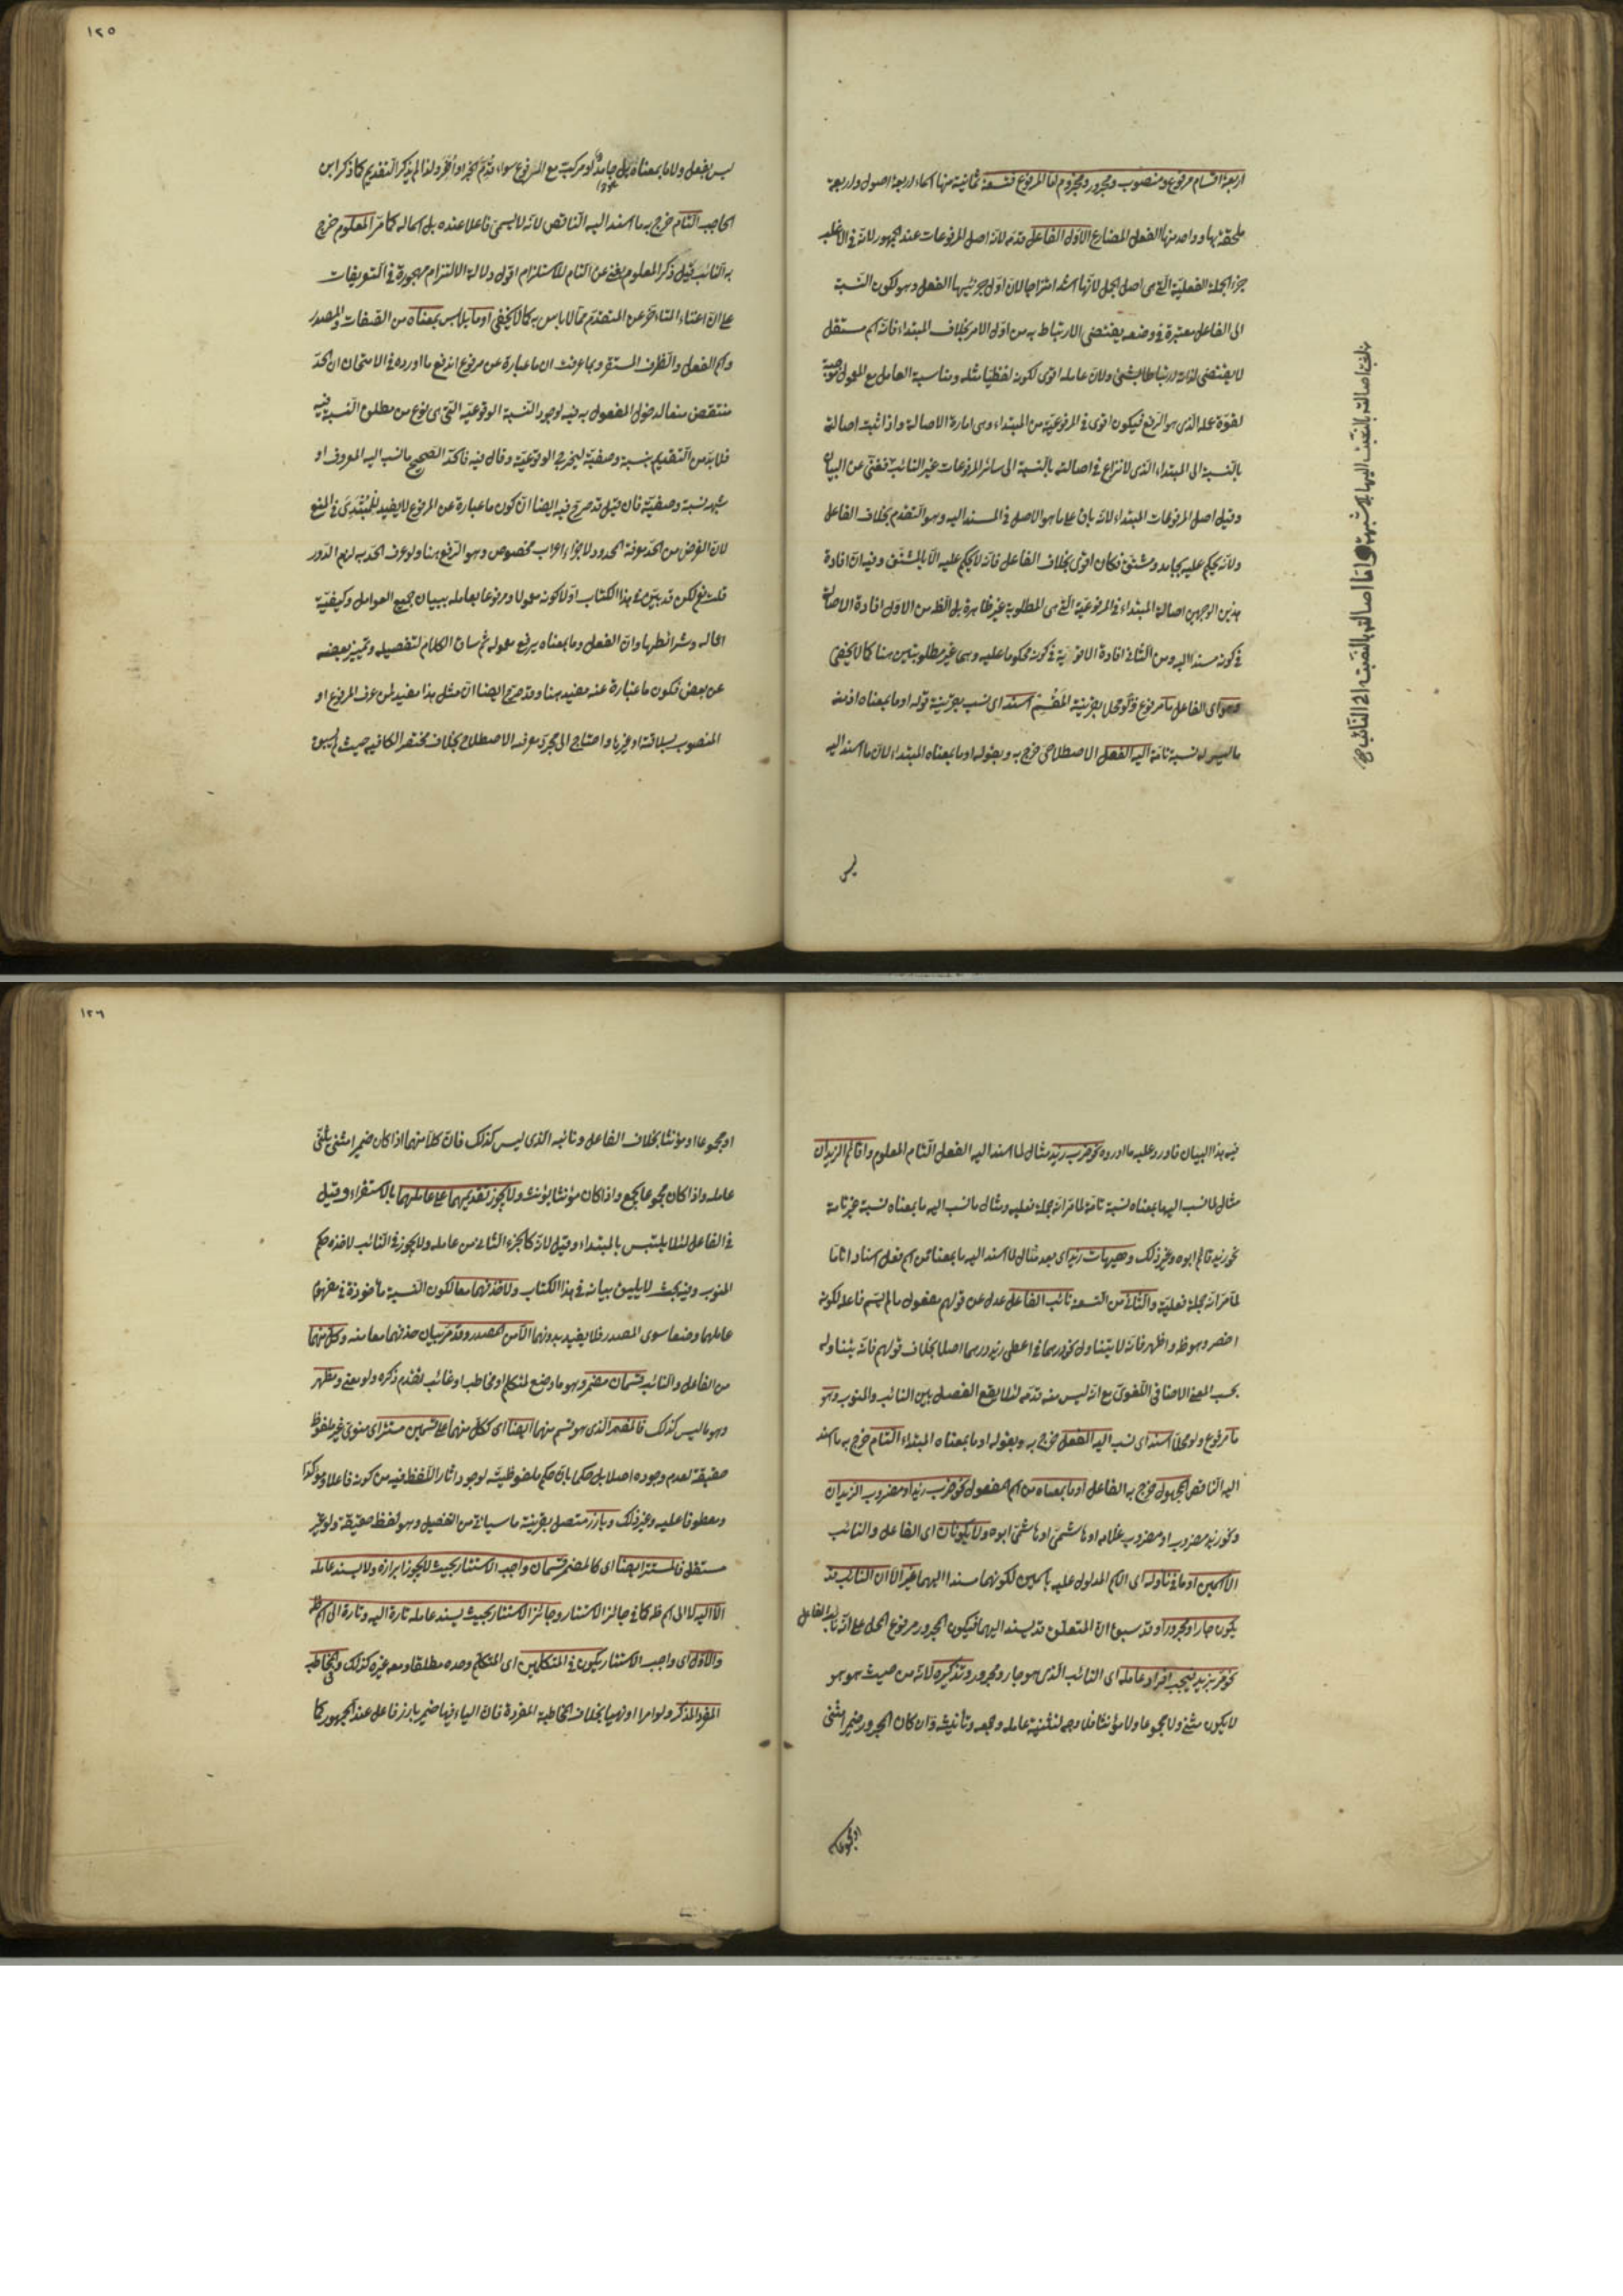 اربعة اقسام مرفوع ومنصوب ومجرور ومجزوم اما المرفوع فتسعة ثمانية منها اسماء اربعة اصول واربعة
ملحقة بها وواحد منها الفعل المضارع الاول الفاعل قدمه لانه اصل المرفوعات عند الجمهور لانه في الاغلب
جزء الجملة الفعلية التي هي اصل الجمل لانها اشد امتزاجا لان اول جزئيها الفعل وهو لكون النسبة
الى الفاعل معتبرة في وضعه يقتضي الارتباط به من اول الامر بخلاف المبتداء فانه اسم مستقل
لا يقتضي لذاته ارتباطا بشئ ولان عامله اقوى لكونه لفظيا مثله ومناسبة العامل مع المعمول موجبة
لقوة عمله الذي هو الرفع فيكون اقوى في المرفوعية من المبتداء وهي امارة الاصالة واذا ثبت اصالته
بالنسبة الى المبتداء الذي لا نزاع في اصالته بالنسبة الى سائر المرفوعات غير النائب فغني عن البيان
وقيل اصل المرفوعات المبتداء لانه باق على ما هو الاصل في المسند اليه وهو التقدم بخلاف الفاعل
ولانه يحكم عليه بجامد ومشتق فكان اقوى بخلاف الفاعل فانه لا يحكم عليه الا بالمشتق وفيه ان افادة
هذين الوجهين اصالة المبتداء في المرفوعية التي هي المطلوبة غير ظاهرة بل الظ من الاول افادة الاصالة
في كونه مسندا اليه ومن الثاني افادة الاقوية في كونه محكوما عليه وهما غير مطلوبتين هنا كما لا يخفى
وهو اي الفاعل ما مرفوع ولو محلا بقرينة المقسم اسند اي نسب بقرينة قوله او ما بمعناه اذ منه
ما ليس له نسبة تامة اليه الفعل الاصطلاحي خرج به وبقوله او ما بمعناه المبتداء لان ما اسند اليه
ليس
واما اصالته بالنسبة الى النائب
١٢٥
ليس بفعل ولا ما بمعناه بل جامد او مركب مع المرفوع سواء قدم الخبر او اخر ولذا لم يذكر التقديم كما ذكر ابن
الحاجب التام خرج به ما اسند اليه الناقص لانه لا يسمى فاعلا عنده بل اسما له كما مر المعلوم خرج
به النائب قيل ذكر المعلوم يغني عن التام للاستلزام اقول دلالة الالتزام مهجورة في التعريفات
على ان اغناء المتاخر عن المتقدم مما لا باس به كما لا يخفى او ما يلابس بمعناه من الصفات والمصدر
واسم الفعل والظرف المستقر وبما عرفت ان ما عبارة عن مرفوع اندفع ما اورده في الامتحان ان الحد
منتقض منعا لدخول المفعول به فيه لوجود النسبة الوقوعية التي هي نوع من مطلق النسبة فيه
فلا بد من التقديم بنسبة وصفية ليخرج الوقوعية وقال فيه فالحد الصحيح ما نسب اليه المعروف او
شبهه نسبة وصفية فان قيل قد صرح فيه ايضا ان كون ما عبارة عن المرفوع لا يفيد للمبتدي في المنع
لان الغرض من الحد معرفة المحدود لاجراء اعراب مخصوص وهو الرفع هنا ولو عرف الحد به لزم الدور
قلت نعم لكن قد بين في هذا الكتاب اولا كونه معمولا ومرفوعا بعامله ببيان جميع العوامل وكيفية
اعماله وشرائطها وان الفعل وما بمعناه يرفع معموله ثم ساق الكلام لتفصيله وتمييز بعضه
عن بعض فكون ما عبارة عنه مفيد هنا وقد صرح ايضا ان مثل هذا مفيد لمن عرف المرفوع او
المنصوب بسلاقة او غيرها واحتاج الى مجرد معرفة الاصطلاح بخلاف مختصر الكافيه حيث لم يبين
فيه هذا البيان فاورد عليه ما اورده نحو ضرب زيد مثال لما اسند اليه الفعل التام المعلوم واقائم الزيدان
مثال لما نسب اليه ما بمعناه نسبة تامة لما مر انه جملة فعليه ومثال ما نسب اليه ما بمعناه نسبة غير تامة
نحو زيد قائم ابوه وغير ذلك وهيهات زيد اي بعد مثال لما اسند اليه ما بمعناه من اسم فعل اسنادا تاما
لما مر انه جملة فعلية والثاني من التسعة نائب الفاعل عدل عن قولهم مفعول ما لم يسم فاعله لكونه
اخصر وهو ظ واظهر فانه لا يتناول نحو درهما في اعطي زيد درهما اصلا بخلاف قولهم فانه يتناوله
بحسب المعنى الاضافي اللغوي مع انه ليس منه قدمه لئلا يقع الفصل بين النائب والمنوب وهو
ما مرفوع ولو محلا اسند اي نسب اليه الفعل خرج به وبقوله او ما بمعناه المبتداء التام خرج به ما اسند
اليه الناقص المجهول خرج به الفاعل او ما بمعناه من اسم المفعول نحو ضرب زيد او مضروب الزيدان
ونحو زيد مضروب او مضروب غلامه او هاشمي او هاشمي ابوه ولا يكونان اي الفاعل والنائب
الا اسمين او ما في تاوله اي الاسم المدلول عليه باسمين لكونهما مسندا اليهما غير الا ان النائب قد
يكون جارا ومجرورا وقد سبق ان المتعلق قد يسند اليهما فيكون المجرور مرفوع المحل على انه نائب الفاعل
نحو مر بزيد فيجب افراد عامله اي النائب الذي هو جار ومجرور وتذكيره لانه من حيث هو هو
لا يكون مثنى ولا مجموعا ولا مؤنثا فلا وجه لتثنية عامله وجمعه وتأنيثه وان كان المجرور ضميرا مثنى
او مجموعا
١٢٦
او مجموعا او مؤنثا بخلاف الفاعل ونائبه الذي ليس كذلك فان كلا منهما اذا كان ضميرا مثنى يثنى
عامله واذا كان مجموعا يجمع واذا كان مؤنثا يؤنث ولا يجوز تقديمهما على عاملهما بالاستقراء وقيل
في الفاعل لئلا يلتبس بالمبتداء وقيل لانه كالجزء الثاني من عامله ولا يجوز في النائب لاخذه حكم
المنوب وفيه بحث لا يليق بيانه في هذا الكتاب ولا حذفهما معا لكون النسبة مأخوذة في مفهوم
عاملهما وضعا سوى المصدر فلا يفيد بدونهما الا من المصدر وقد مر بيان حذفهما معا منه وكل منهما
من الفاعل والنائب قسمان مضمر وهو ما وضع لمتكلم او مخاطب او غائب تقدم ذكره ولو معنى ومظهر
وهو ما ليس كذلك فالمضمر الذي هو قسم منهما ايضا اي ككل منهما على قسمين مستتر اي منوي غير ملفوظ
حقيقة لعدم وجوده اصلا بل حكما بان حكم بملفوظيته لوجود اثار اللفظ فيه من كونه فاعلا ومؤكدا
ومعطوفا عليه وغير ذلك وبارز متصل بقرينة ما سياتي من التفصيل وهو لفظ حقيقة ولو غير
مستقل فالمستتر ايضا اي كالمضمر قسمان واجب الاستتار بحيث لا يجوز ابرازه ولا يسند عامله
الا اليه لا الى اسم ظ كما في جائز الاستتار وجائز الاستتار بحيث يسند عامله تارة اليه وتارة الى اسم ظ
والاول اي واجب الاستتار يكون في المتكلمين اي المتكلم وحده مطلقا ومعه غيره كذلك والمخاطب
المفرد المذكر ولو امرا او نهيا بخلاف المخاطبة المفردة فان الياء فيها ضمير بارز فاعل عند الجمهور كما